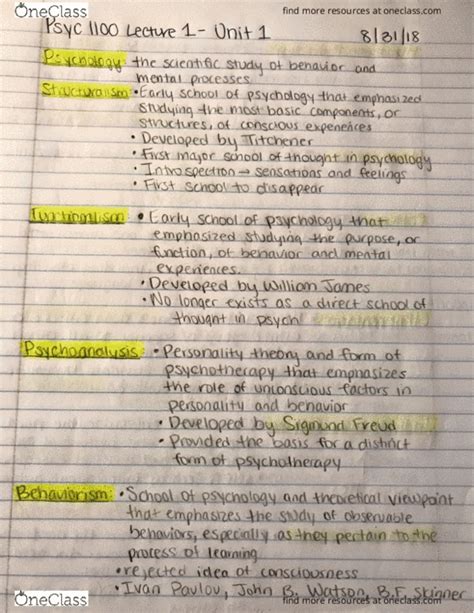 OneClass
find more resources at oneclass.com
Psyc 1100 Lecture 1 - Unit 1
8/31/18
Psychology: the scientific study of behavior and
mental processes
Structuralism: • Early school of psychology that emphasized
studying the most basic components, or
structures, of conscious experiences
• Developed by Titchener
• First major school of thought in psychology
• Introspection → sensations and feelings
• First school to disappear
Functionalism • Early school of psychology that
emphasized studying the purpose, or
function, of behavior and mental
experiences.
• Developed by William James
• No longer exists as a direct school of
thought in psych
Psychoanalysis: • Personality theory and form of
psychotherapy that emphasizes
the role of unconscious factors in
personality and behavior
• Developed by Sigmund Freud
• Provided the basis for a distinct
form of psychotherapy
Behaviorism: • School of psychology and theoretical viewpoint
that emphasizes the study of observable
behaviors, especially as they pertain to the
process of learning
• rejected idea of consciousness
• Ivan Pavlov, John B. Watson, B.F. Skinner
OneClass
find more resources at oneclass.com